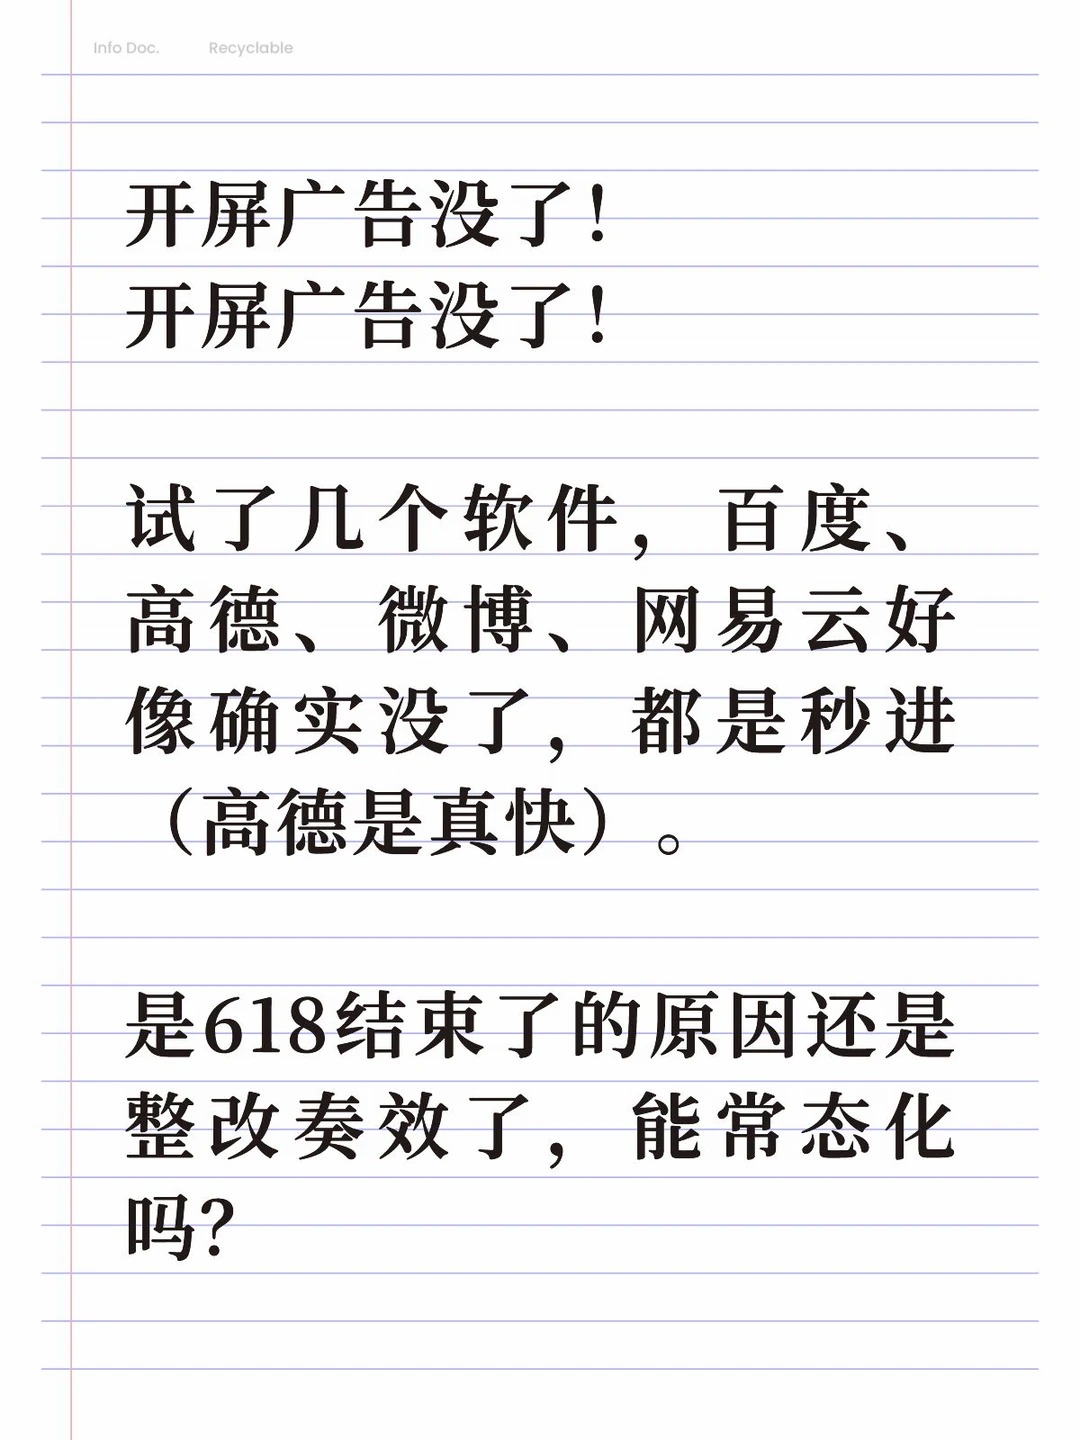 Info Doc. Recyclable
开屏广告没了！
开屏广告没了！
试了几个软件，百度、
高德、微博、网易云好
像确实没了，都是秒进
（高德是真快）。
是618结束了的原因还是
整改奏效了，能常态化
吗？